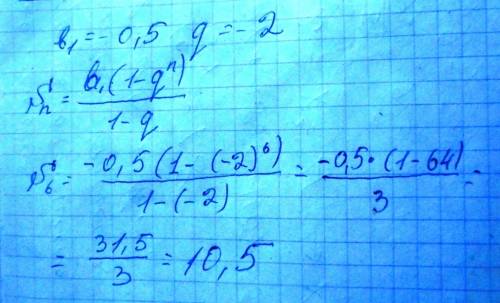 b₁ = -0,5 q = -2
Sₙ = b₁(1-qⁿ) / 1-q
S₆ = -0,5(1-(-2)⁶) / 1-(-2) = -0,5·(1-64) / 3 =
= 31,5 / 3 = 10,5